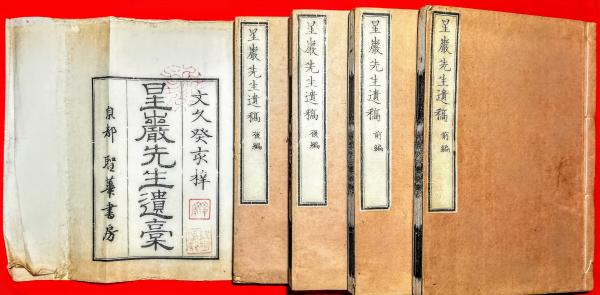 星巖先生遺稿 前編
星巖先生遺稿 前編
星巖先生遺稿 後編
星巖先生遺稿 後編
文久癸亥梓
星巖先生遺稾
京都 聖華書房